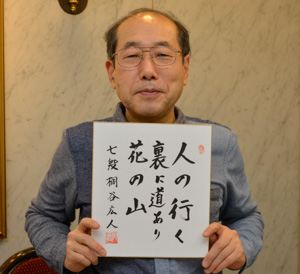 人の行く
裏に道あり
花の山
七段 桐谷広人